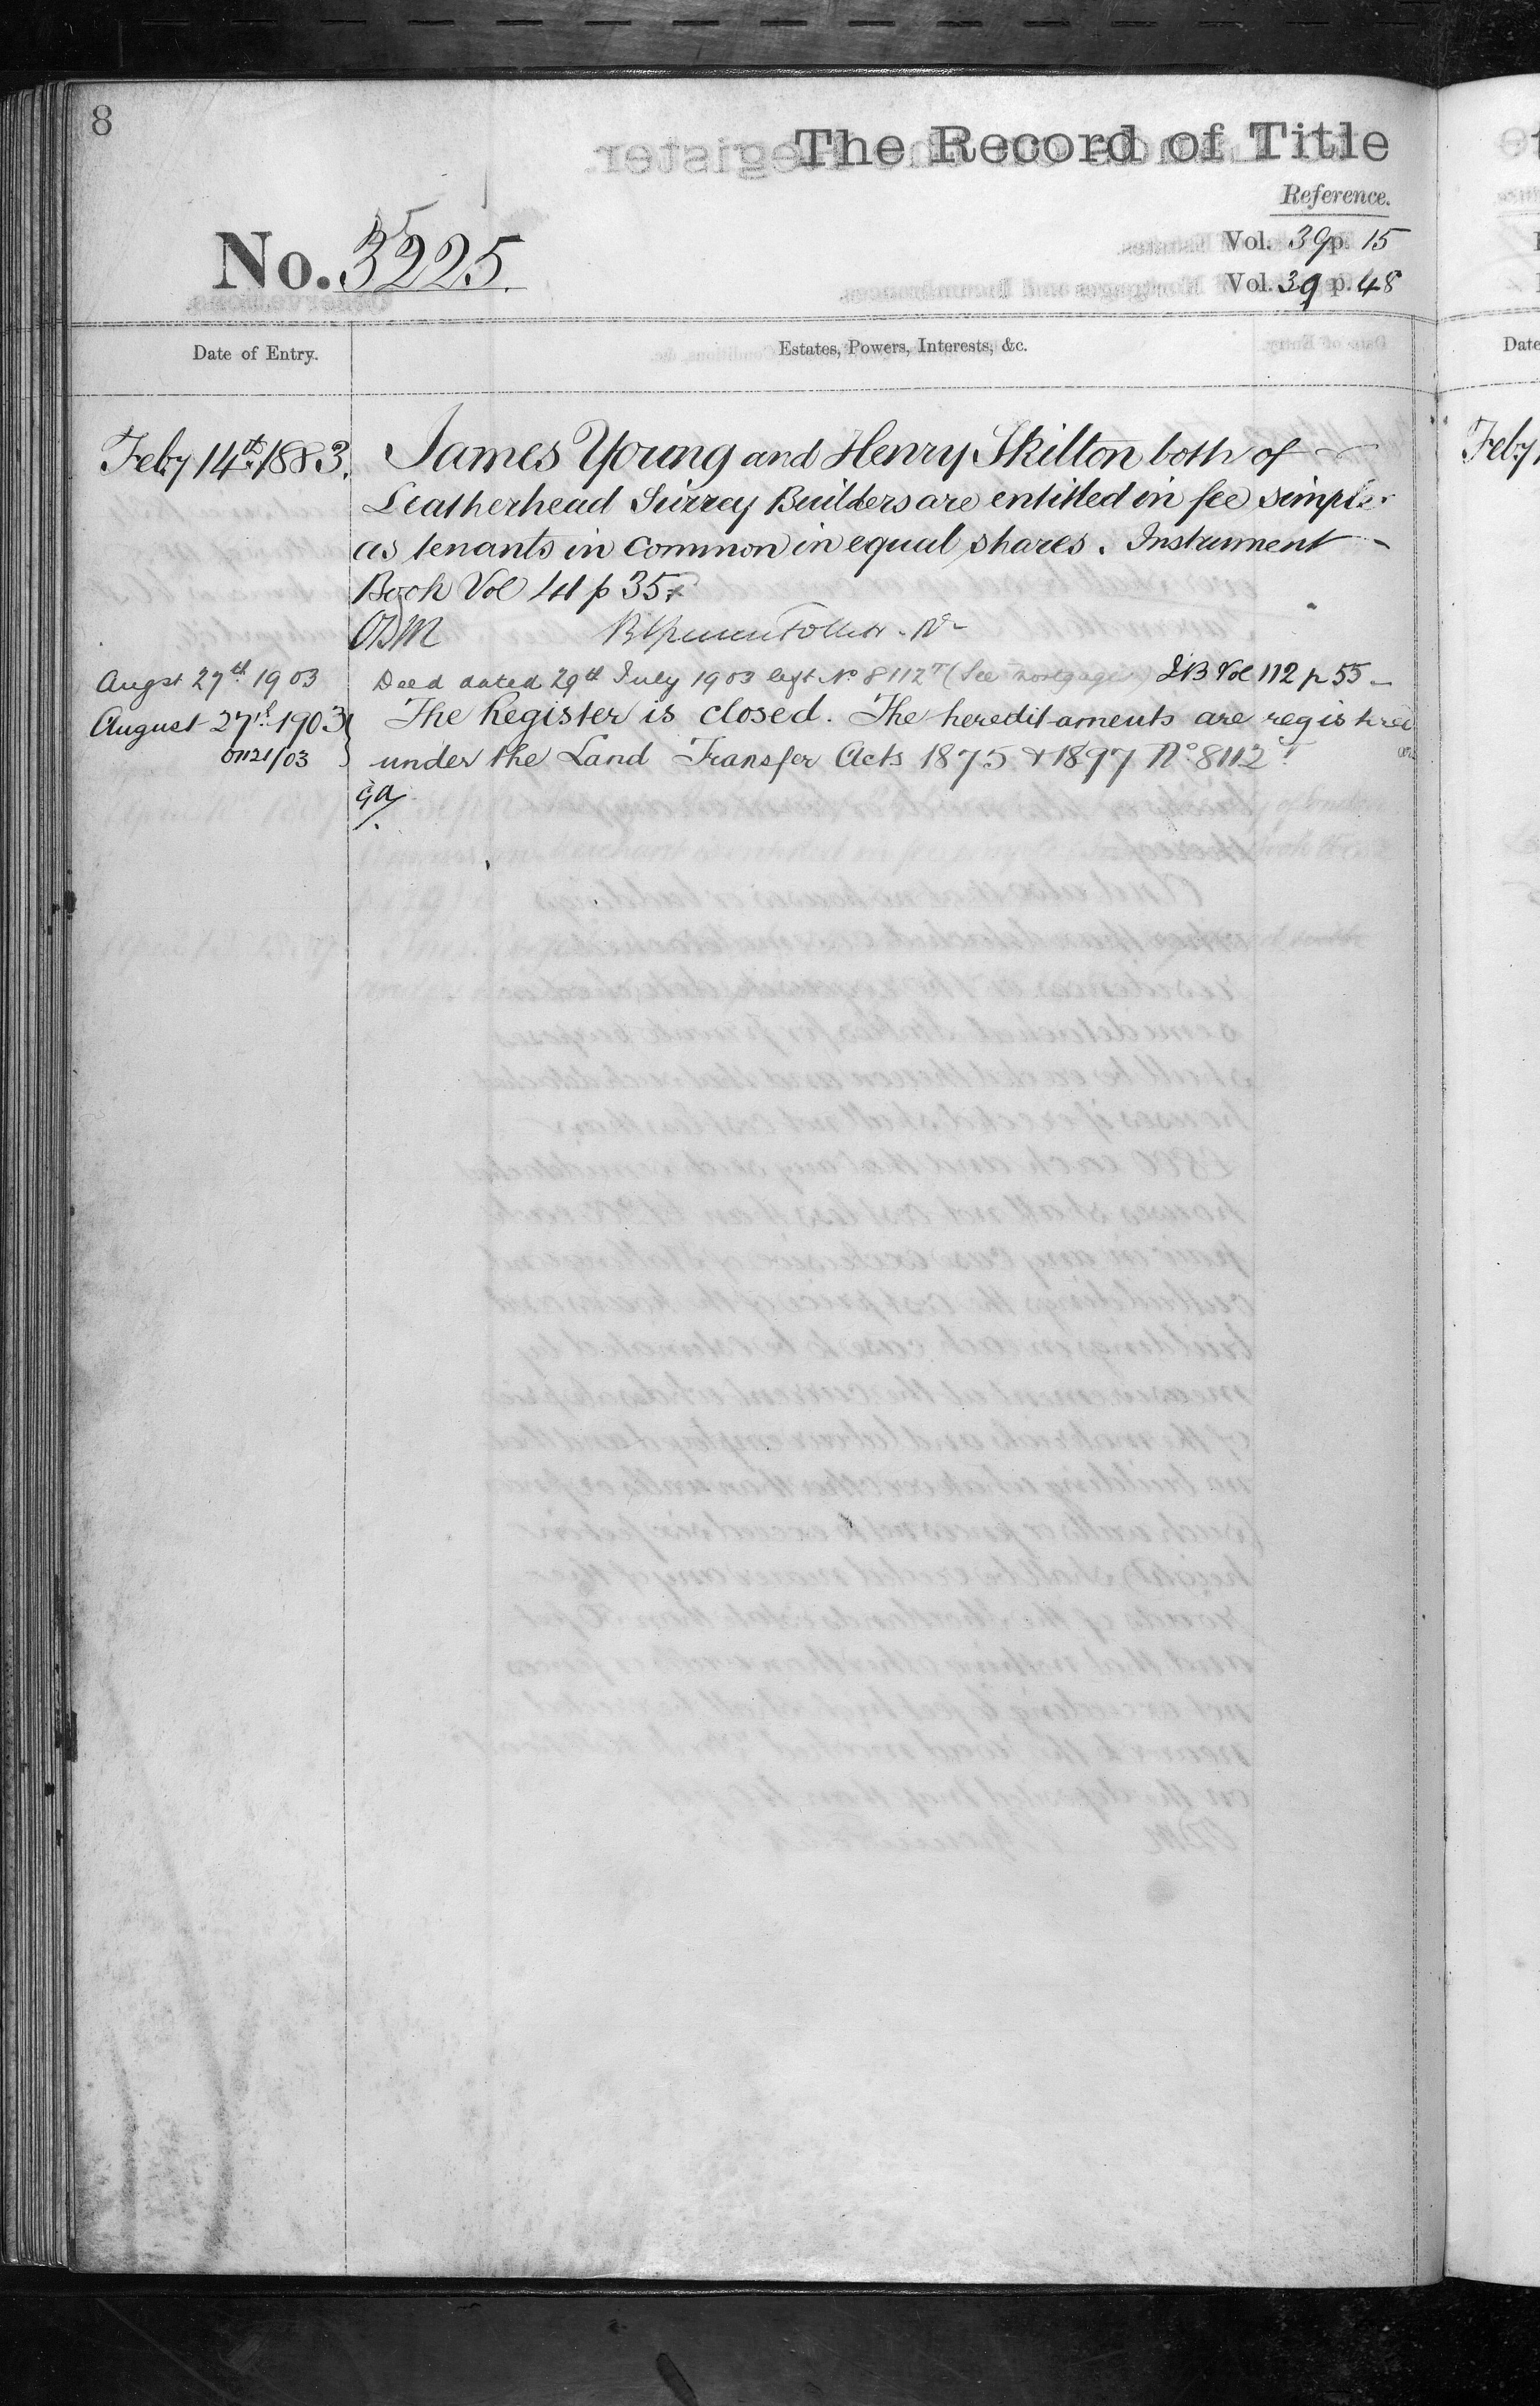 8
The Record of Title
Reference.
No. 3225.
Vol. 39 p. 15
Vol. 39 p. 48
Date of Entry.
Estates, Powers, Interests, &c.
Feby 14th 1883.
James Young and Henry Skilton both of
Leatherhead Surrey Builders are entitled in fee simple
as tenants in common in equal shares. Instrument
Book Vol 41 p 35.
Augst 27th 1903
Deed dated 29th July 1903 left No 8112T (See mortgage) IB Vol 112 p 55
August 27th 1903
The Register is closed. The hereditaments are registered
/03
under the Land Transfer Acts 1875 & 1897 No 8112T
Date
Feby